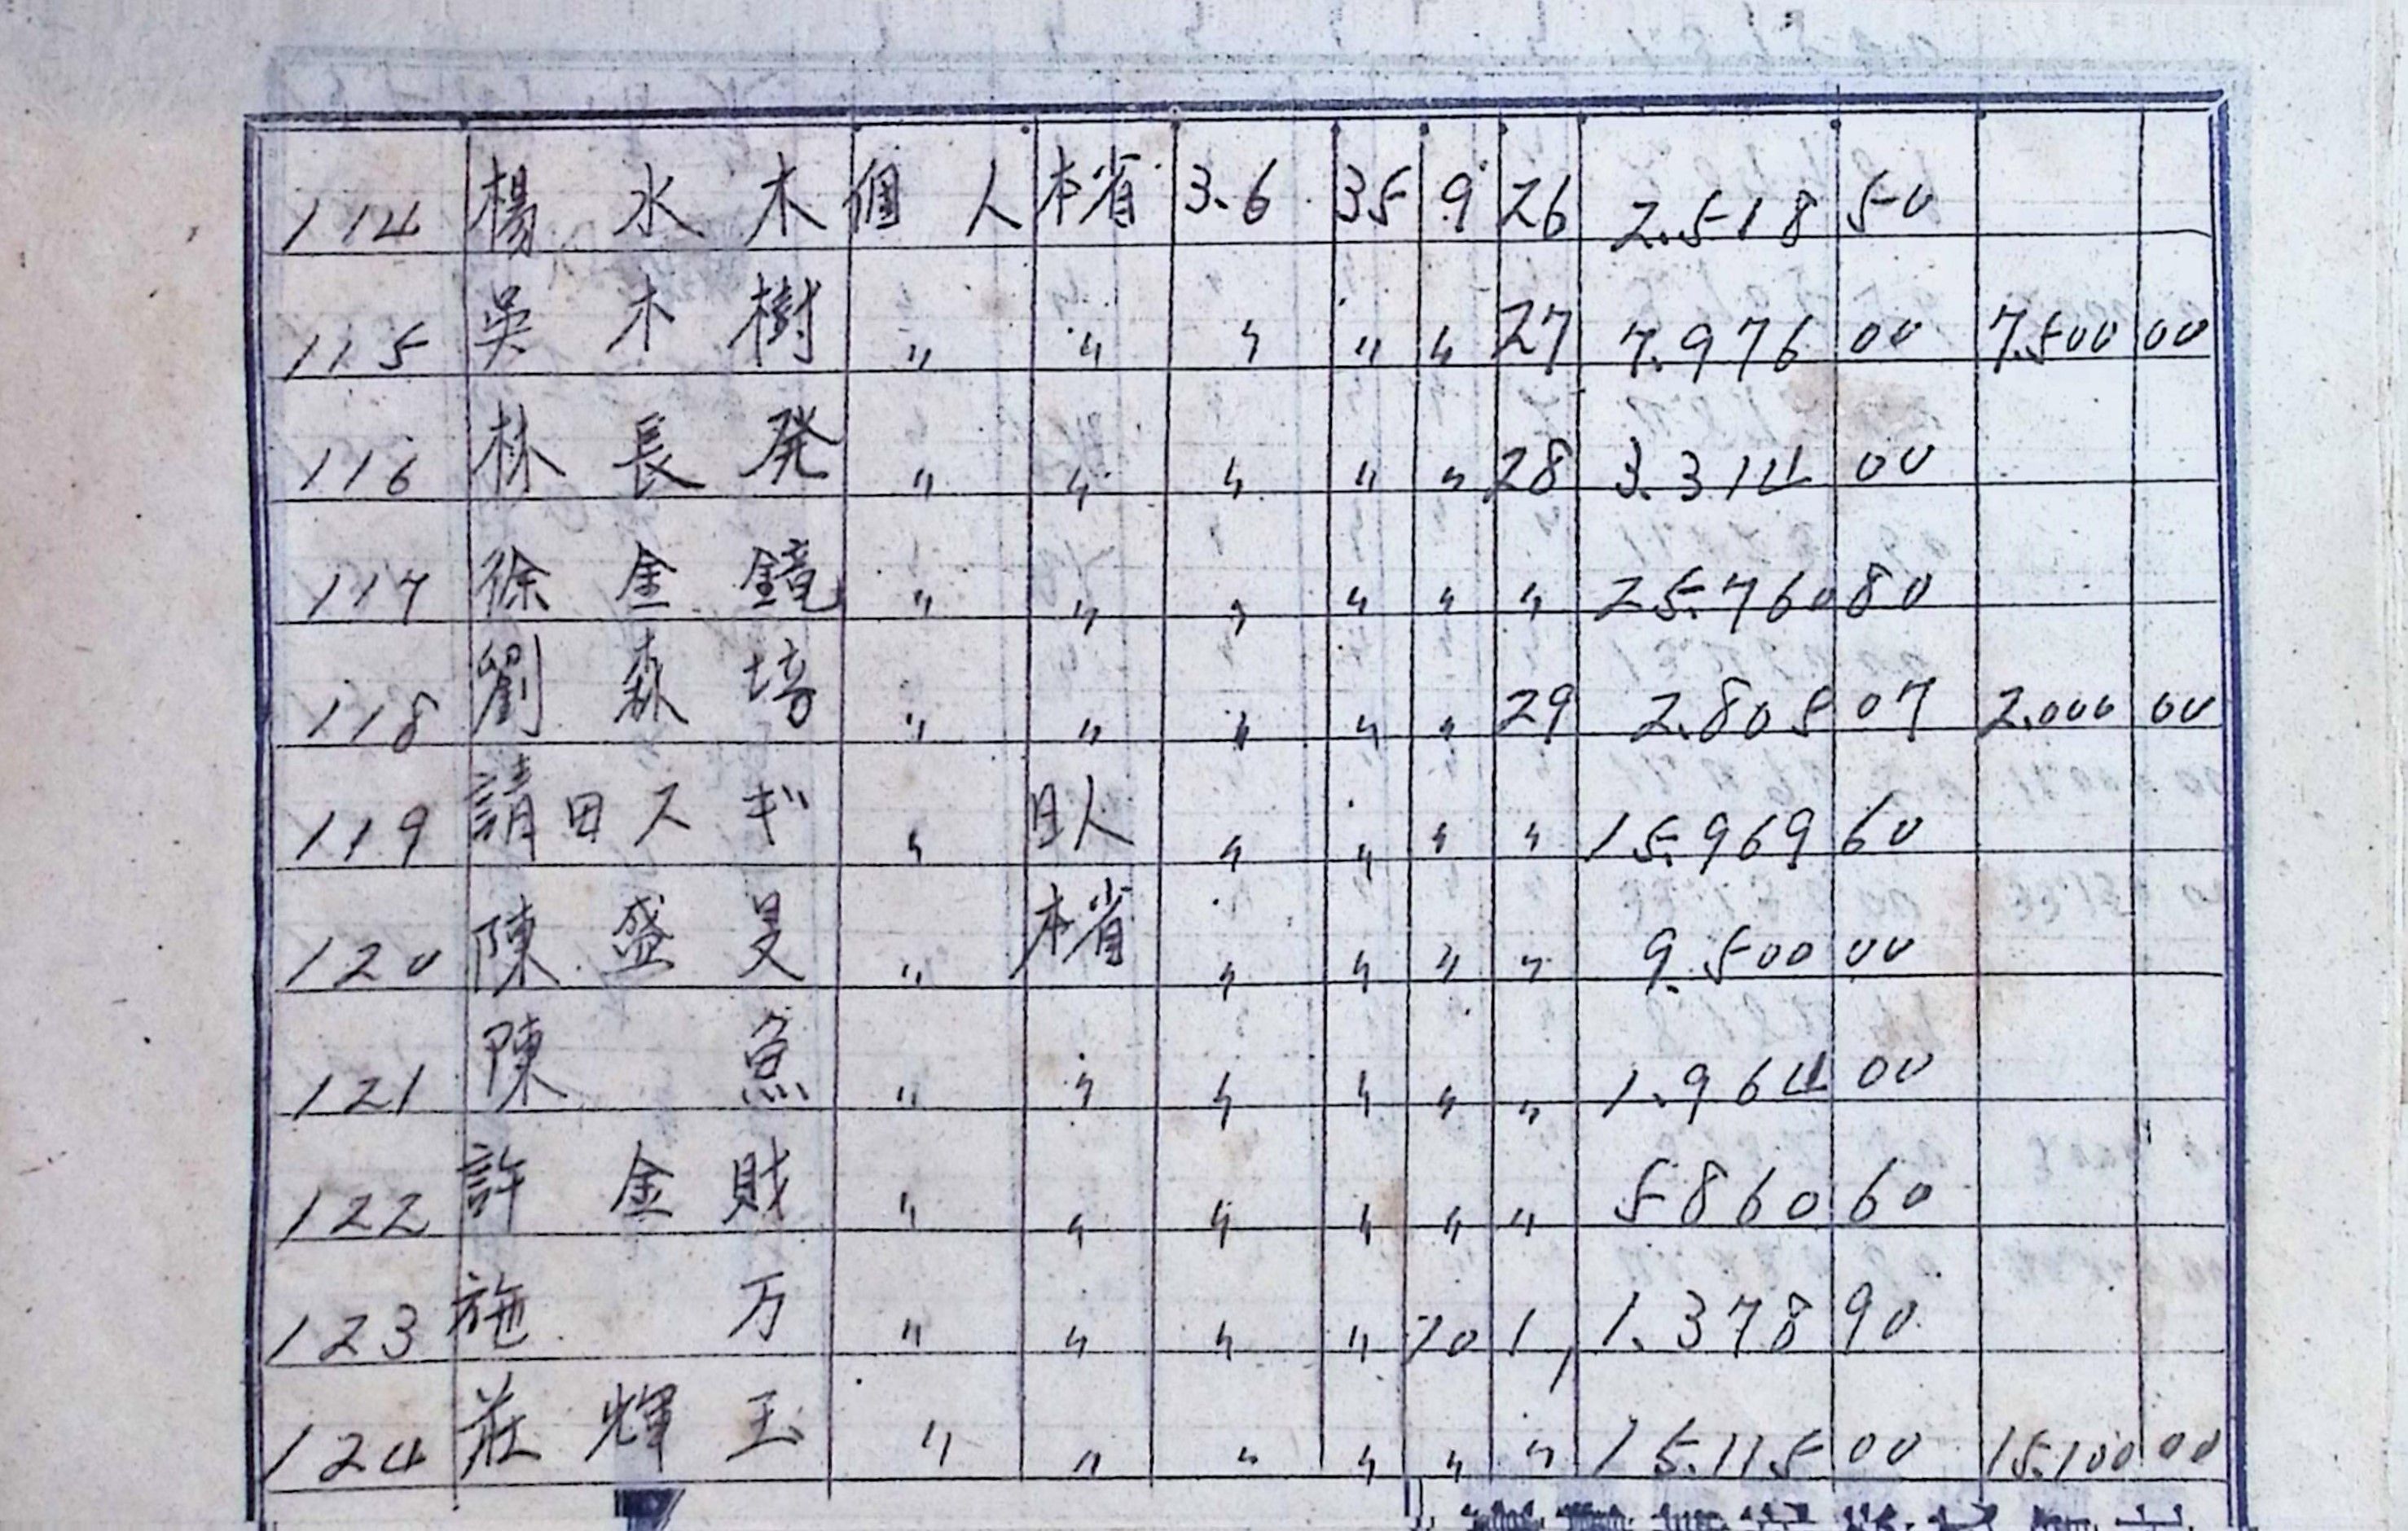 114 楊水木 個人 本省 3.6 35 9 26 2.518 50
115 吳木樹 〃 〃 〃 〃 〃 27 7.976 00 7.500 00
116 林長発 〃 〃 〃 〃 〃 28 3.314 00
117 徐金鏡 〃 〃 〃 〃 〃 〃 25.760 80
118 劉森培 〃 〃 〃 〃 〃 29 2.805 07 2.000 00
119 請田スギ 〃 日人 〃 〃 〃 〃 15.969 60
120 陳盛旻 〃 本省 〃 〃 〃 〃 9.500 00
121 陳魚 〃 〃 〃 〃 〃 〃 1.964 00
122 許金財 〃 〃 〃 〃 〃 〃 5860 60
123 施万 〃 〃 〃 〃 10 1, 1.378 90
124 莊輝玉 〃 〃 〃 〃 〃 〃 15.115 00 15.100 00